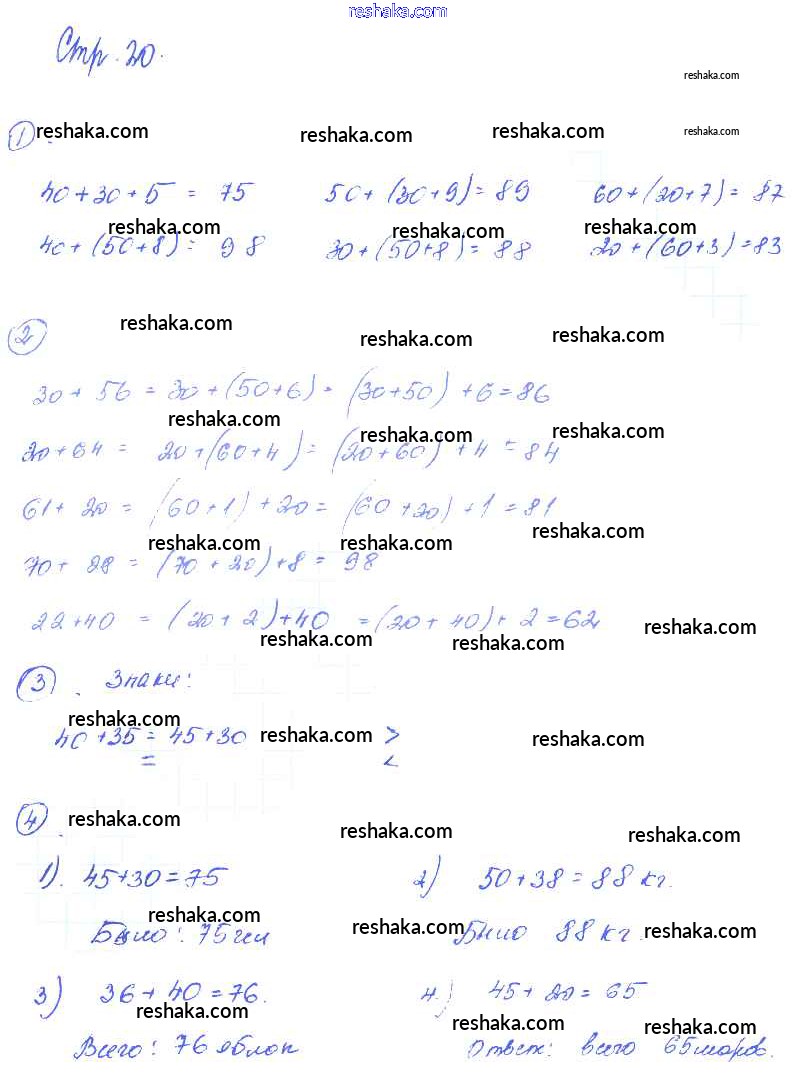 reshaka.com
Стр. 20.
reshaka.com
1 reshaka.com reshaka.com reshaka.com reshaka.com
40+30+5 = 75 50+(30+9)=89 60+(20+7)=87
reshaka.com reshaka.com reshaka.com
40+(50+8)= 98 30+(50+8)=88 20+(60+3)=83
2 reshaka.com reshaka.com reshaka.com
30+56 = 30+(50+6)= (30+50)+6=86
reshaka.com reshaka.com reshaka.com
20+64 = 20+(60+4)= (20+60)+4=84
61+20 = (60+1)+20= (60+20)+1=81
reshaka.com reshaka.com reshaka.com
70+28 = (70+20)+8= 98
22+40 = (20+2)+40 =(20+40)+2=62
reshaka.com reshaka.com reshaka.com
3. Знаки:
reshaka.com
40+35=45+30 reshaka.com > reshaka.com
= <
4. reshaka.com reshaka.com reshaka.com
1). 45+30=75 2) 50+38=88 кг.
reshaka.com reshaka.com reshaka.com
Было: 75 Было 88 кг.
3) 36+40=76. 4.) 45+20=65
reshaka.com reshaka.com reshaka.com
Всего: 76 яблок Ответ: всего 65 шаров.